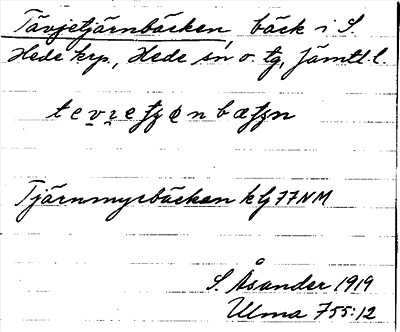 Tävjetjärnbäcken, bäck i S.
Hede krp., Hede sn o. tg, Jämtl. l.
Tjärnmyrbäcken kG 77 NM
S. Åsander 1919
Ulma 755:12